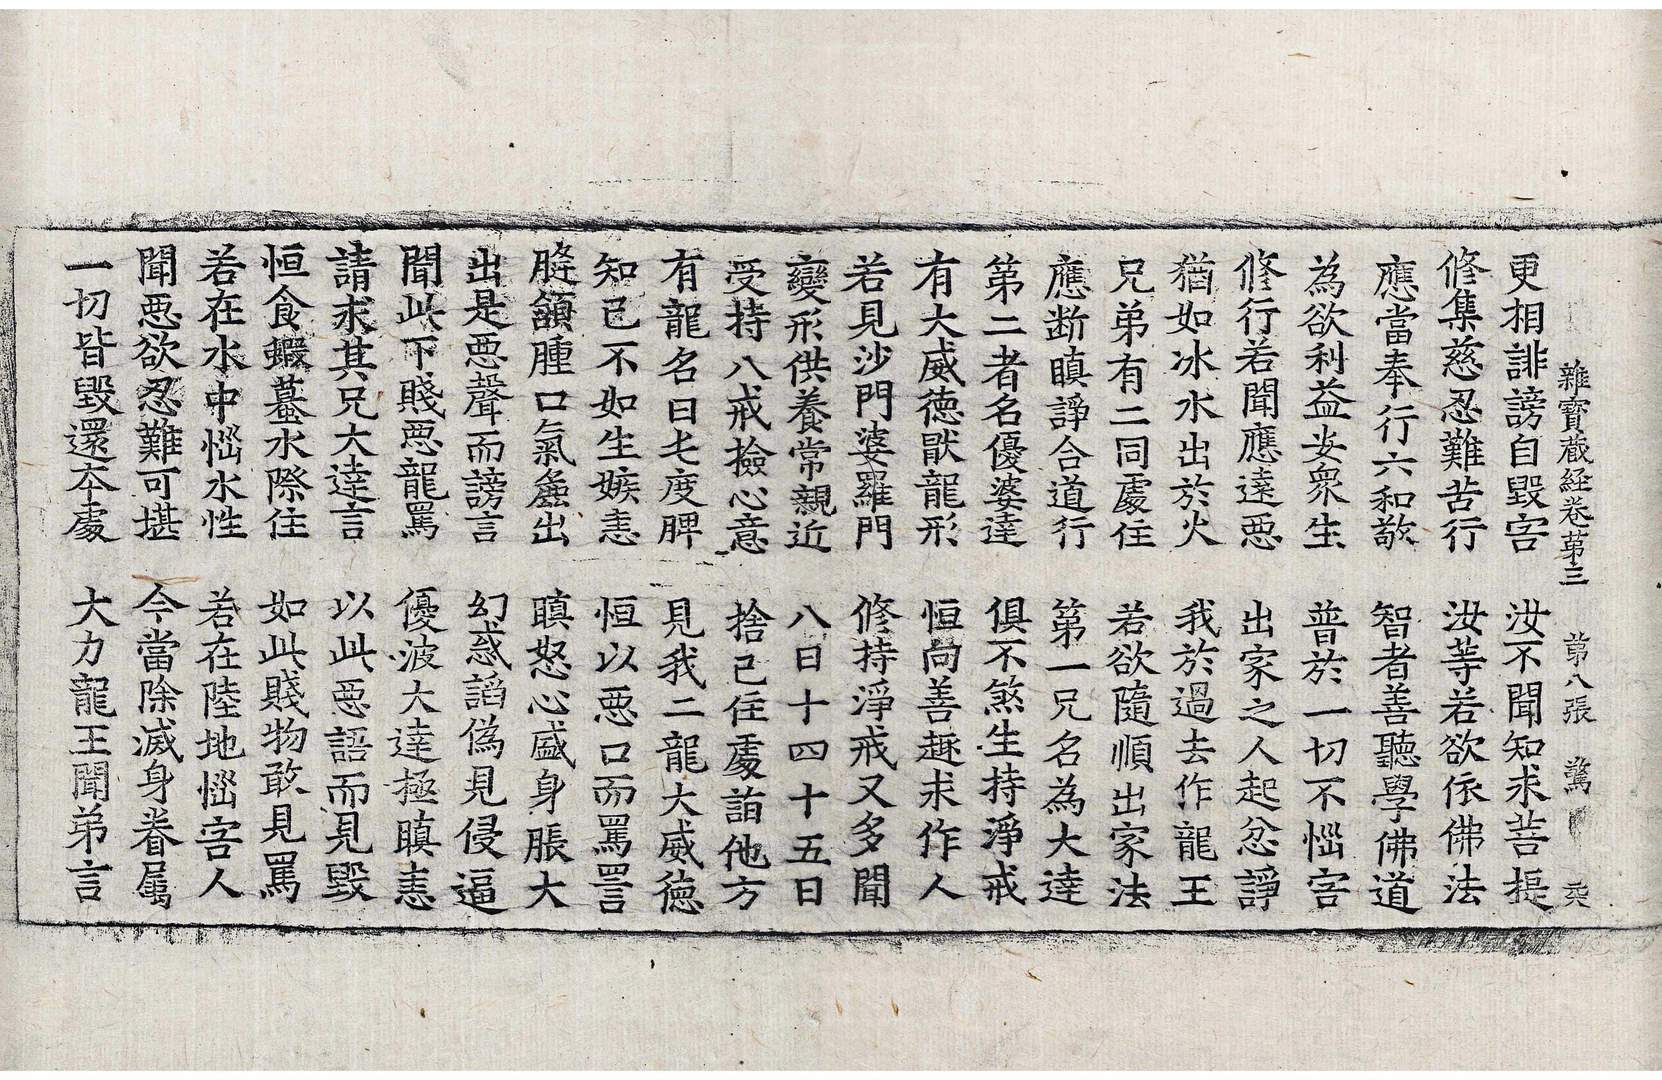 雜寶藏經卷第三 第八張 驚
更相誹謗自毀害 汝不聞知求菩提
修集慈忍難苦行 汝等若欲依佛法
應當奉行六和敬 智者善聽學佛道
為欲利益安衆生 普於一切不惱害
修行若聞應遠惡 出家之人起忿諍
猶如冰水出於火 我於過去作龍王
兄弟有二同處住 若欲隨順出家法
應断瞋諍合道行 第一兄名為大達
第二者名優婆達 俱不煞生持淨戒
有大威德猒龍形 恒尚善趣求作人
若見沙門婆羅門 修持淨戒又多聞
變形供養常親近 八日十四十五日
受持八戒撿心意 捨己住處詣他方
有龍名曰毛度脾 見我二龍大威德
知已不如生嫉恚 恒以惡口而罵詈
膖頷腫口氣麁出 瞋怒心盛身脹大
出是惡聲而謗言 幻惑謟偽見侵逼
聞此下賤惡龍罵 優波大達極瞋恚
請求其兄大達言 以此惡語而見毀
恒食蝦蟇水際住 如此賤物敢見罵
若在水中惱水性 若在陸地惱害人
聞惡欲忍難可堪 今當除滅身眷屬
一切皆毀還本處 大力龍王聞弟言